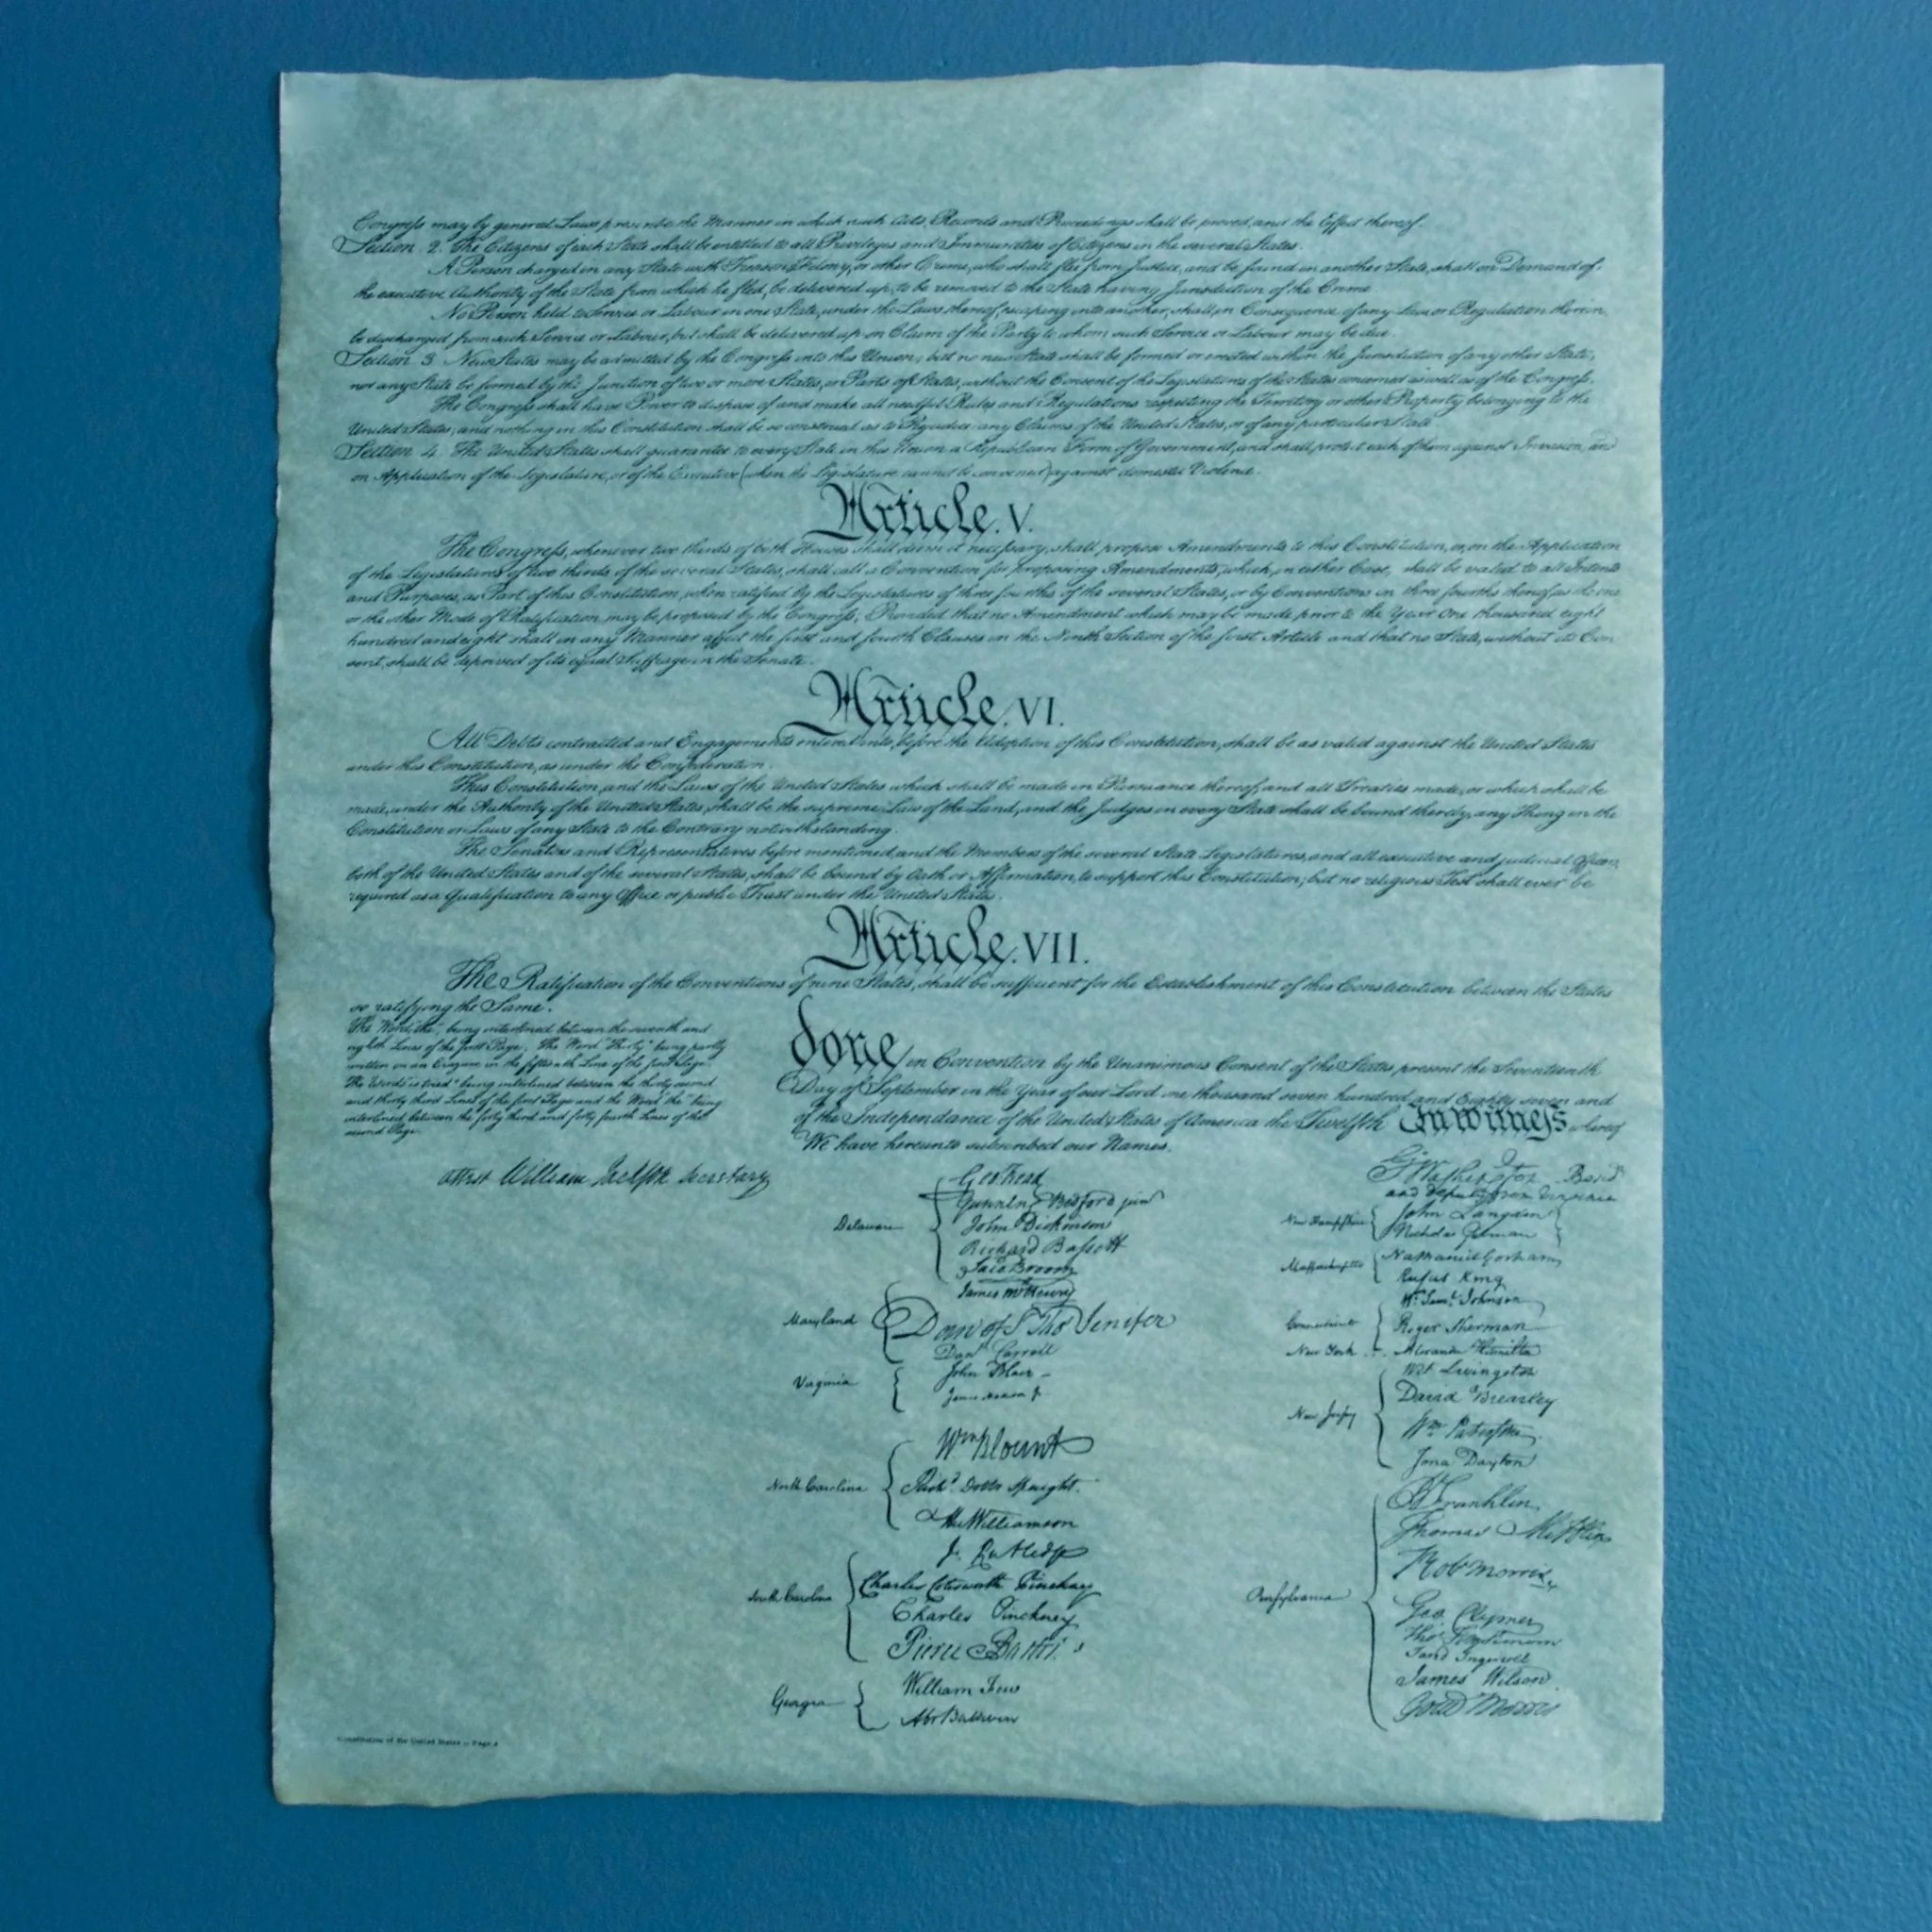 Congress may by general Laws prescribe the Manner in which such Acts, Records and Proceedings shall be proved, and the Effect thereof.
Section 2. The Citizens of each State shall be entitled to all Privileges and Immunities of Citizens in the several States.
A Person charged in any State with Treason, Felony, or other Crime, who shall flee from Justice, and be found in another State, shall on Demand of
the executive Authority of the State from which he fled, be delivered up, to be removed to the State having Jurisdiction of the Crime
No Person held to Service or Labour in one State, under the Laws thereof, escaping into another, shall, in Consequence of any Law or Regulation therein,
be discharged from such Service or Labour, but shall be delivered up on Claim of the Party to whom such Service or Labour may be due.
Section 3. New States may be admitted by the Congress into this Union; but no new State shall be formed or erected within the Jurisdiction of any other State;
nor any State be formed by the Junction of two or more States, or Parts of States, without the Consent of the Legislatures of the States concerned as well as of the Congress.
The Congress shall have Power to dispose of and make all needful Rules and Regulations respecting the Territory or other Property belonging to the
United States; and nothing in this Constitution shall be so construed as to Prejudice any Claims of the United States, or of any particular State
Section 4. The United States shall guarantee to every State in this Union a Republican Form of Government, and shall protect each of them against Invasion; and
on Application of the Legislature, or of the Executive (when the Legislature cannot be convened) against domestic Violence.
Article. V.
The Congress, whenever two thirds of both Houses shall deem it necessary, shall propose Amendments to this Constitution, or, on the Application
of the Legislatures of two thirds of the several States, shall call a Convention for proposing Amendments, which, in either Case, shall be valid to all Intents
and Purposes, as Part of this Constitution, when ratified by the Legislatures of three fourths of the several States, or by Conventions in three fourths thereof, as the one
or the other Mode of Ratification may be proposed by the Congress; Provided that no Amendment which may be made prior to the Year One thousand eight
hundred and eight shall in any Manner affect the first and fourth Clauses in the Ninth Section of the first Article and that no State, without its Con
sent, shall be deprived of its equal Suffrage in the Senate.
Article. VI.
All Debts contracted and Engagements entered into, before the Adoption of this Constitution, shall be as valid against the United States
under this Constitution, as under the Confederation.
This Constitution, and the Laws of the United States which shall be made in Pursuance thereof; and all Treaties made, or which shall be
made, under the Authority of the United States, shall be the supreme Law of the Land; and the Judges in every State shall be bound thereby, any Thing in the
Constitution or Laws of any State to the Contrary notwithstanding.
The Senators and Representatives before mentioned, and the Members of the several State Legislatures, and all executive and judicial Officers,
both of the United States and of the several States, shall be bound by Oath or Affirmation, to support this Constitution; but no religious Test shall ever be
required as a Qualification to any Office or public Trust under the United States.
Article. VII.
The Ratification of the Conventions of nine States, shall be sufficient for the Establishment of this Constitution between the States
so ratifying the Same.
The Word, "the", being interlined between the seventh and
eighth Lines of the first Page, The Word "Thirty" being partly
written on an Erazure in the fifteenth Line of the first Page
The Words "is tried" being interlined between the thirty second
and thirty third Lines of the first Page and the Word "the" being
interlined between the forty third and forty fourth Lines of the
second Page.
done in Convention by the Unanimous Consent of the States present the Seventeenth
Day of September in the Year of our Lord one thousand seven hundred and Eighty seven and
of the Independance of the United States of America the Twelfth In Witness whereof
We have hereunto subscribed our Names,
Attest William Jackson Secretary
Delaware
Geo: Read
Gunning Bedford jun
John Dickinson
Richard Bassett
Jaco: Broom
Maryland
James McHenry
Dan of St Thos Jenifer
Danl Carroll
Virginia
John Blair
James Madison Jr
North Carolina
Wm Blount
Richd Dobbs Spaight.
Hu Williamson
South Carolina
J. Rutledge
Charles Cotesworth Pinckney
Charles Pinckney
Pierce Butler
Georgia
William Few
Abr Baldwin
Go Washington Presidt
and deputy from Virginia
New Hampshire
John Langdon
Nicholas Gilman
Massachusetts
Nathaniel Gorham
Rufus King
Connecticut
Wm Saml Johnson
Roger Sherman
New York
Alexander Hamilton
New Jersey
Wil: Livingston
David Brearley
Wm Paterson
Jona: Dayton
Pensylvania
B Franklin
Thomas Mifflin
Robt Morris
Geo. Clymer
Thos FitzSimons
Jared Ingersoll
James Wilson
Gouv Morris
Constitution of the United States - Page 4